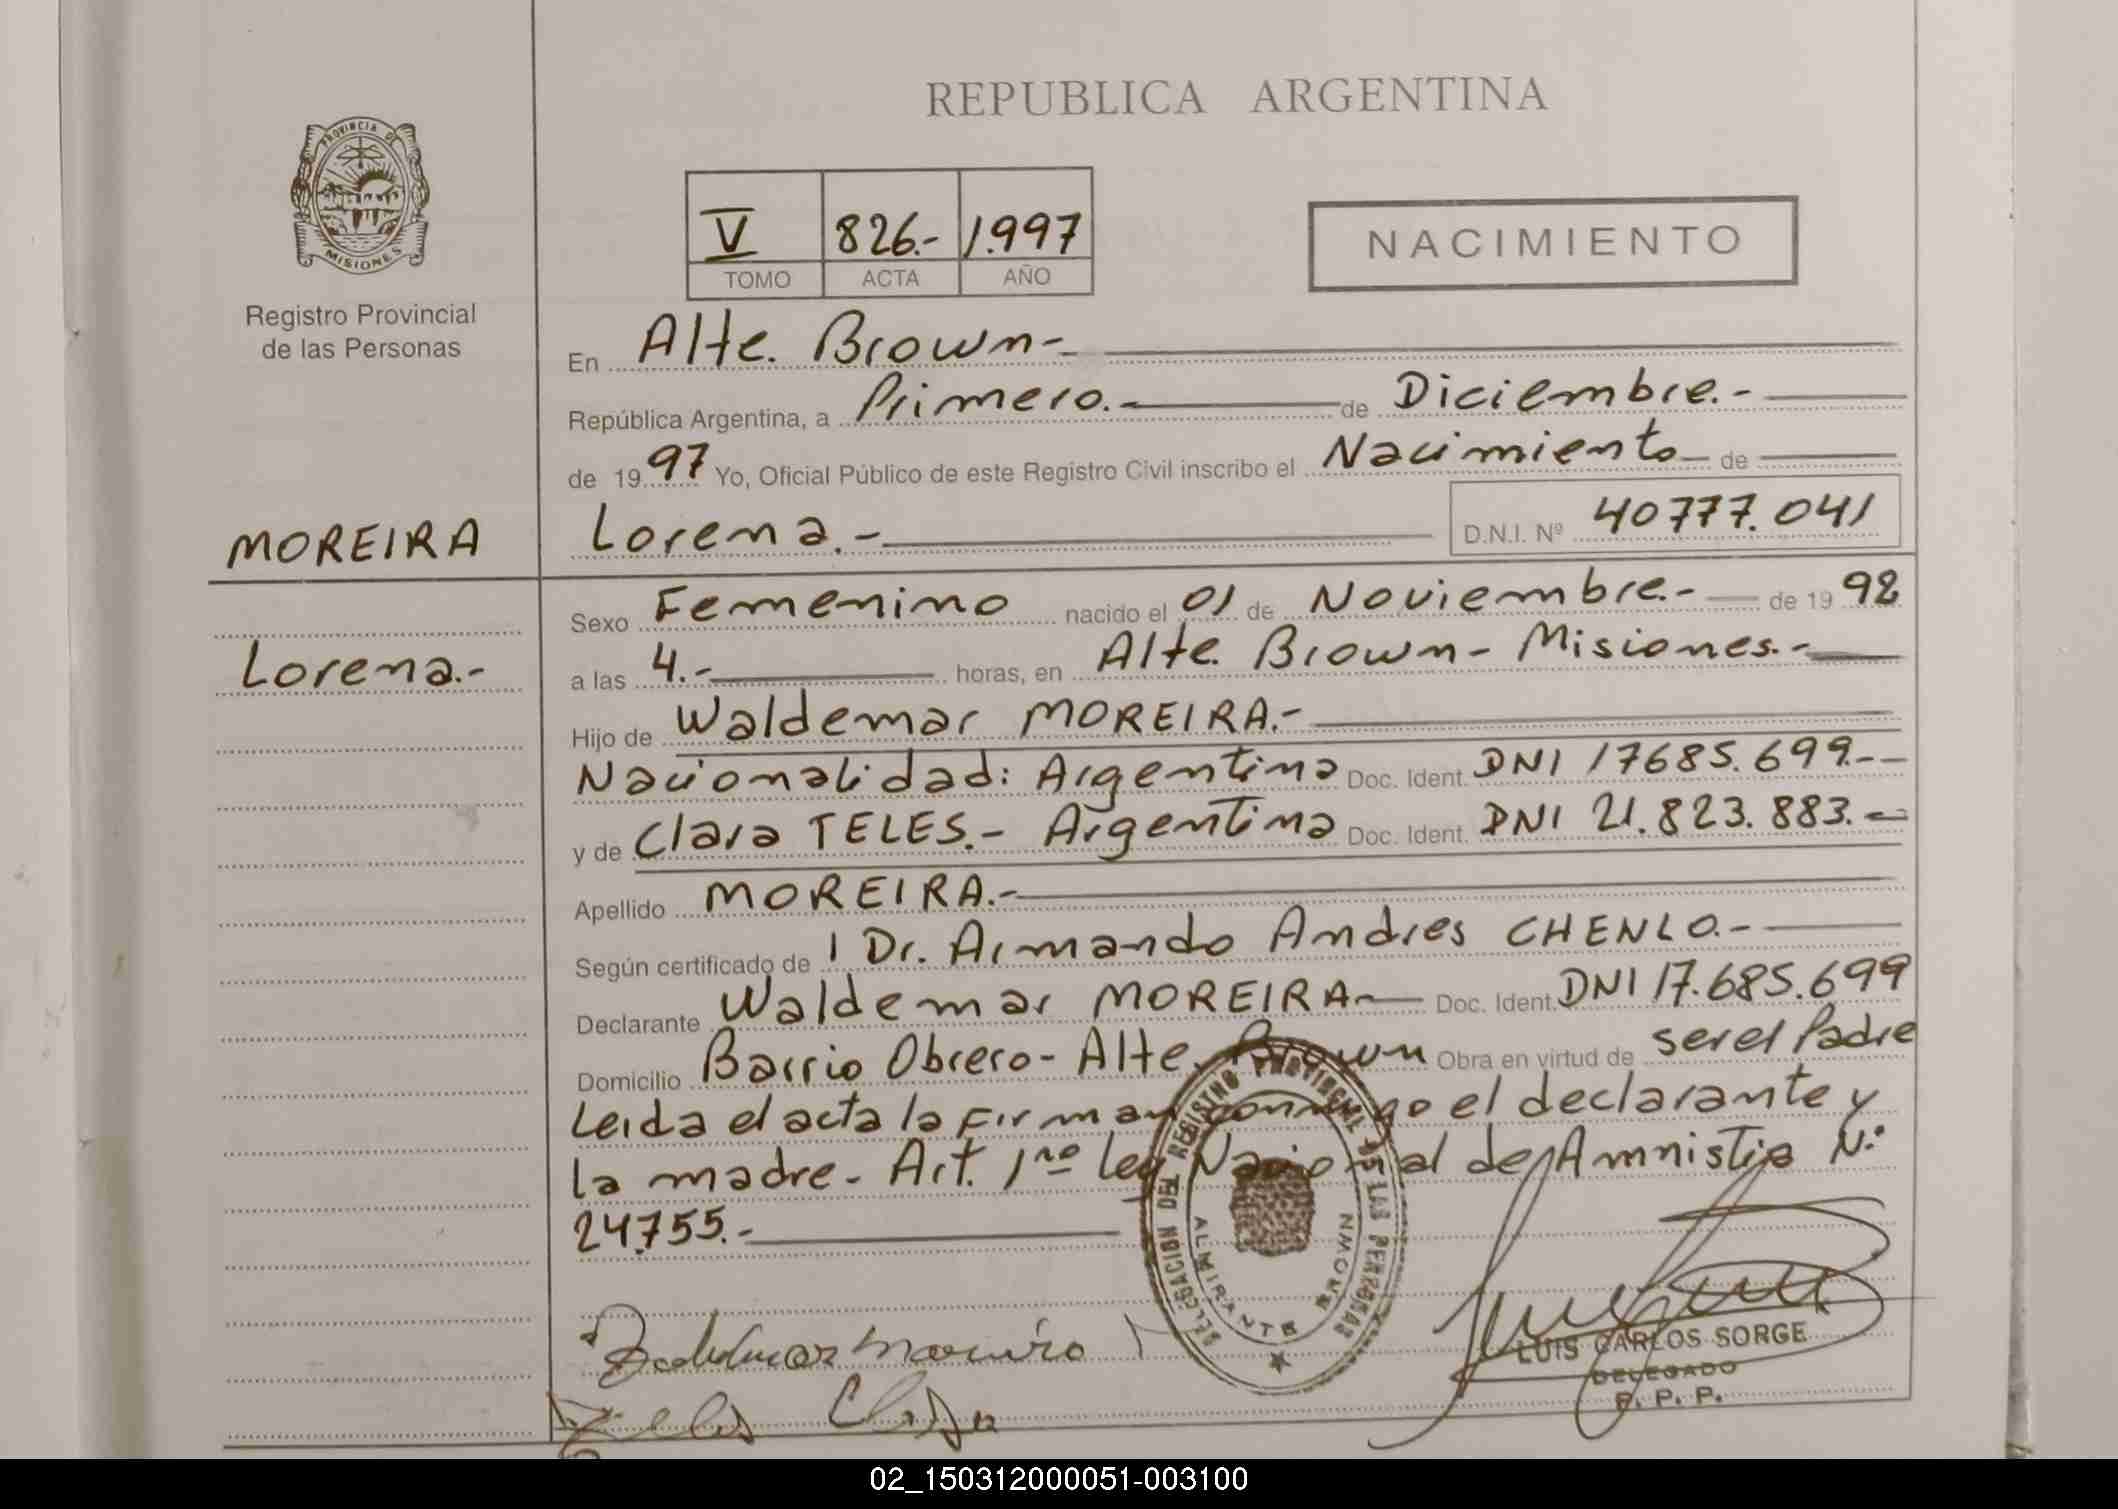 REPUBLICA ARGENTINA
PROVINCIA DE
MISIONES
Registro Provincial
de las Personas
V 826.- 1.997
TOMO ACTA AÑO
NACIMIENTO
En Alte. Brown-
República Argentina, a Primero.- de Diciembre.-
de 1997 Yo, Oficial Público de este Registro Civil inscribo el Nacimiento de
MOREIRA
Lorena.- D.N.I. Nº 40777.041
Lorena.-
Sexo Femenino nacido el 01 de Noviembre.- de 1992
a las 4.- horas, en Alte. Brown- Misiones.-
Hijo de Waldemar MOREIRA.-
Nacionalidad: Argentina Doc. Ident. DNI 17685.699.--
y de Clara TELES.- Argentina Doc. Ident. DNI 21.823.883.-
Apellido MOREIRA.-
Según certificado de 1 Dr. Armando Andres CHENLO.-
Declarante Waldemar MOREIRA- Doc. Ident. DNI 17.685.699
Domicilio Barrio Obrero- Alte. Brown Obra en virtud de ser el Padre
Leida el acta la Firman conmigo el declarante y
la madre- Art. 1ro Ley Nacional de Amnistia N.º
24755.-
DELEGACION DEL REGISTRO PROVINCIAL DE LAS PERSONAS
ALMIRANTE BROWN
Teles Clara
LUIS CARLOS SORGE
DELEGADO
R. P. P.
02_150312000051-003100